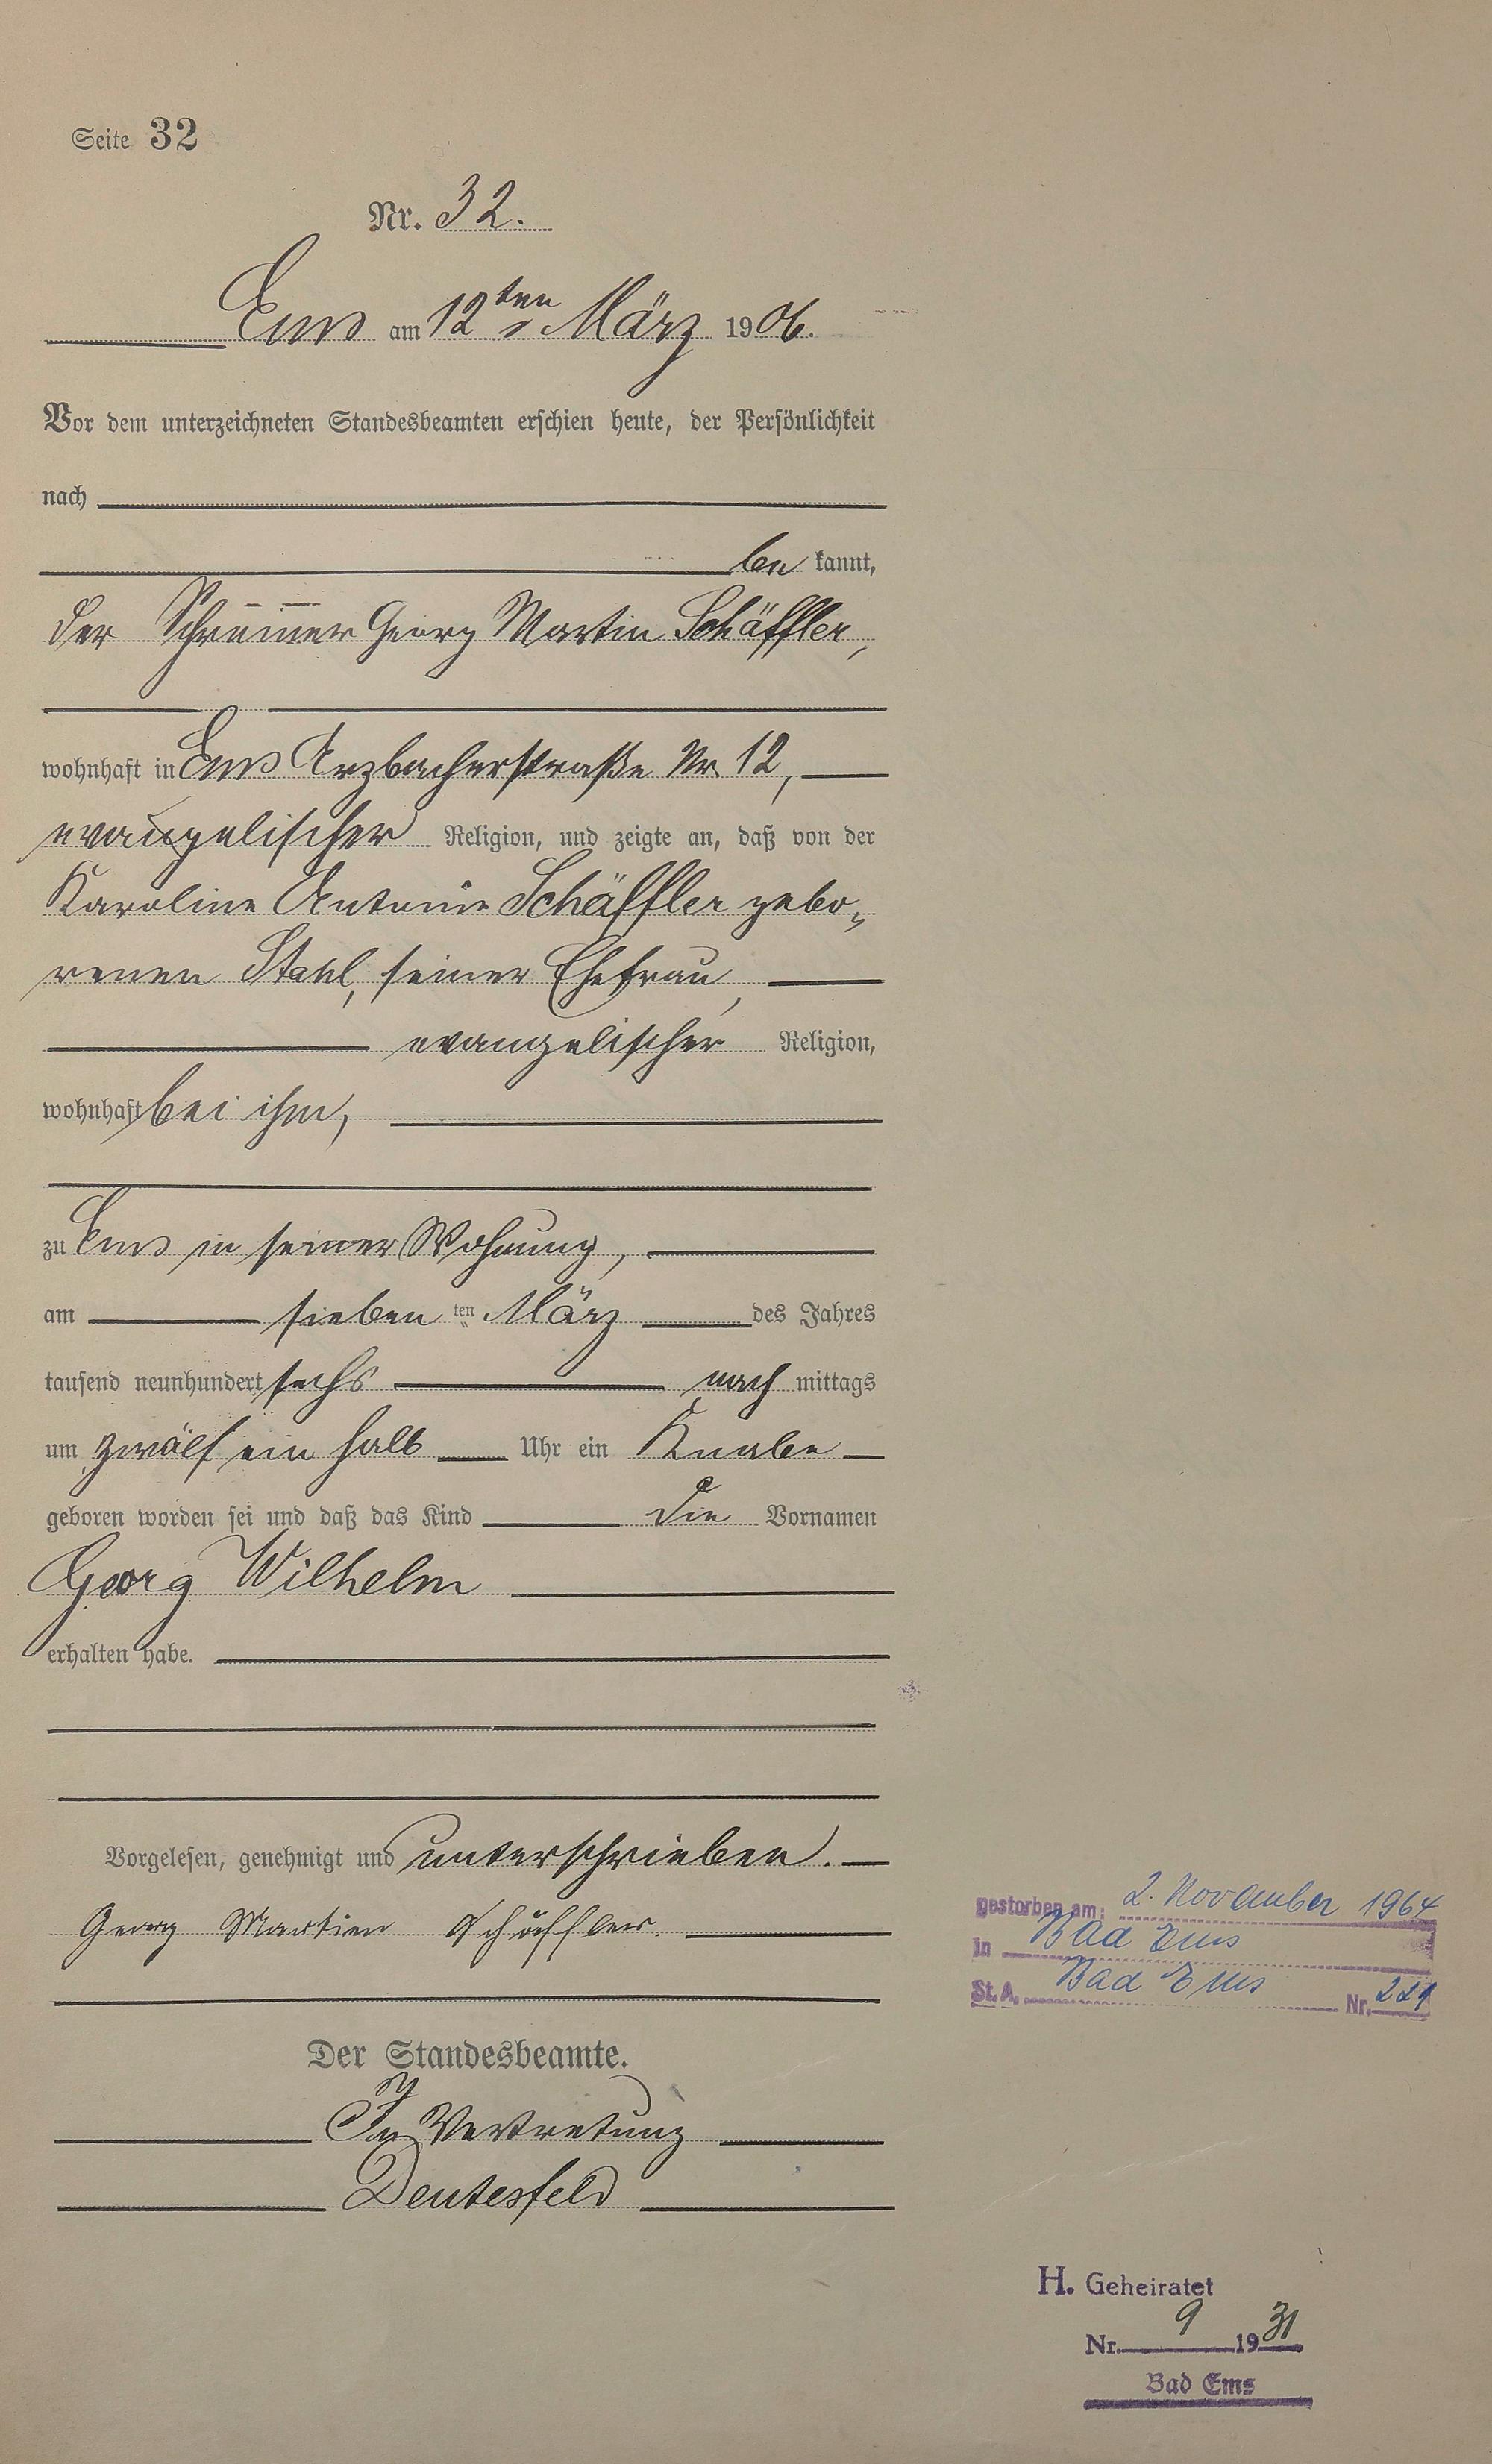 Seite 32
Nr. 32.
Ems am 12ten März 1906.
Vor dem unterzeichneten Standesbeamten erschien heute, der Persönlichkeit
nach
be kannt,
der Schreiner Georg Martin Schäffler,
wohnhaft in Ems Arzbacherstraße Nr 12,
evangelischer Religion, und zeigte an, daß von der
Karoline Antonie Schäffler gebo„
renen Stahl, seiner Ehefrau,
evangelischer Religion,
wohnhaft bei ihm,
zu Ems in seiner Wohnung,
am sieben ten März des Jahres
tausend neunhundert sechs nach mittags
um zwölf ein halb Uhr ein Knabe
geboren worden sei und daß das Kind die Vornamen
Georg Wilhelm
erhalten habe.
Vorgelesen, genehmigt und unterschrieben.
Georg Martien Schäffler.
gestorben am: 2. November 1964
in Bad Ems
St. A. Bad Ems Nr. 221
Der Standesbeamte.
In Vertretung
Deutesfeld
H. Geheiratet
Nr. 9 1931
Bad Ems